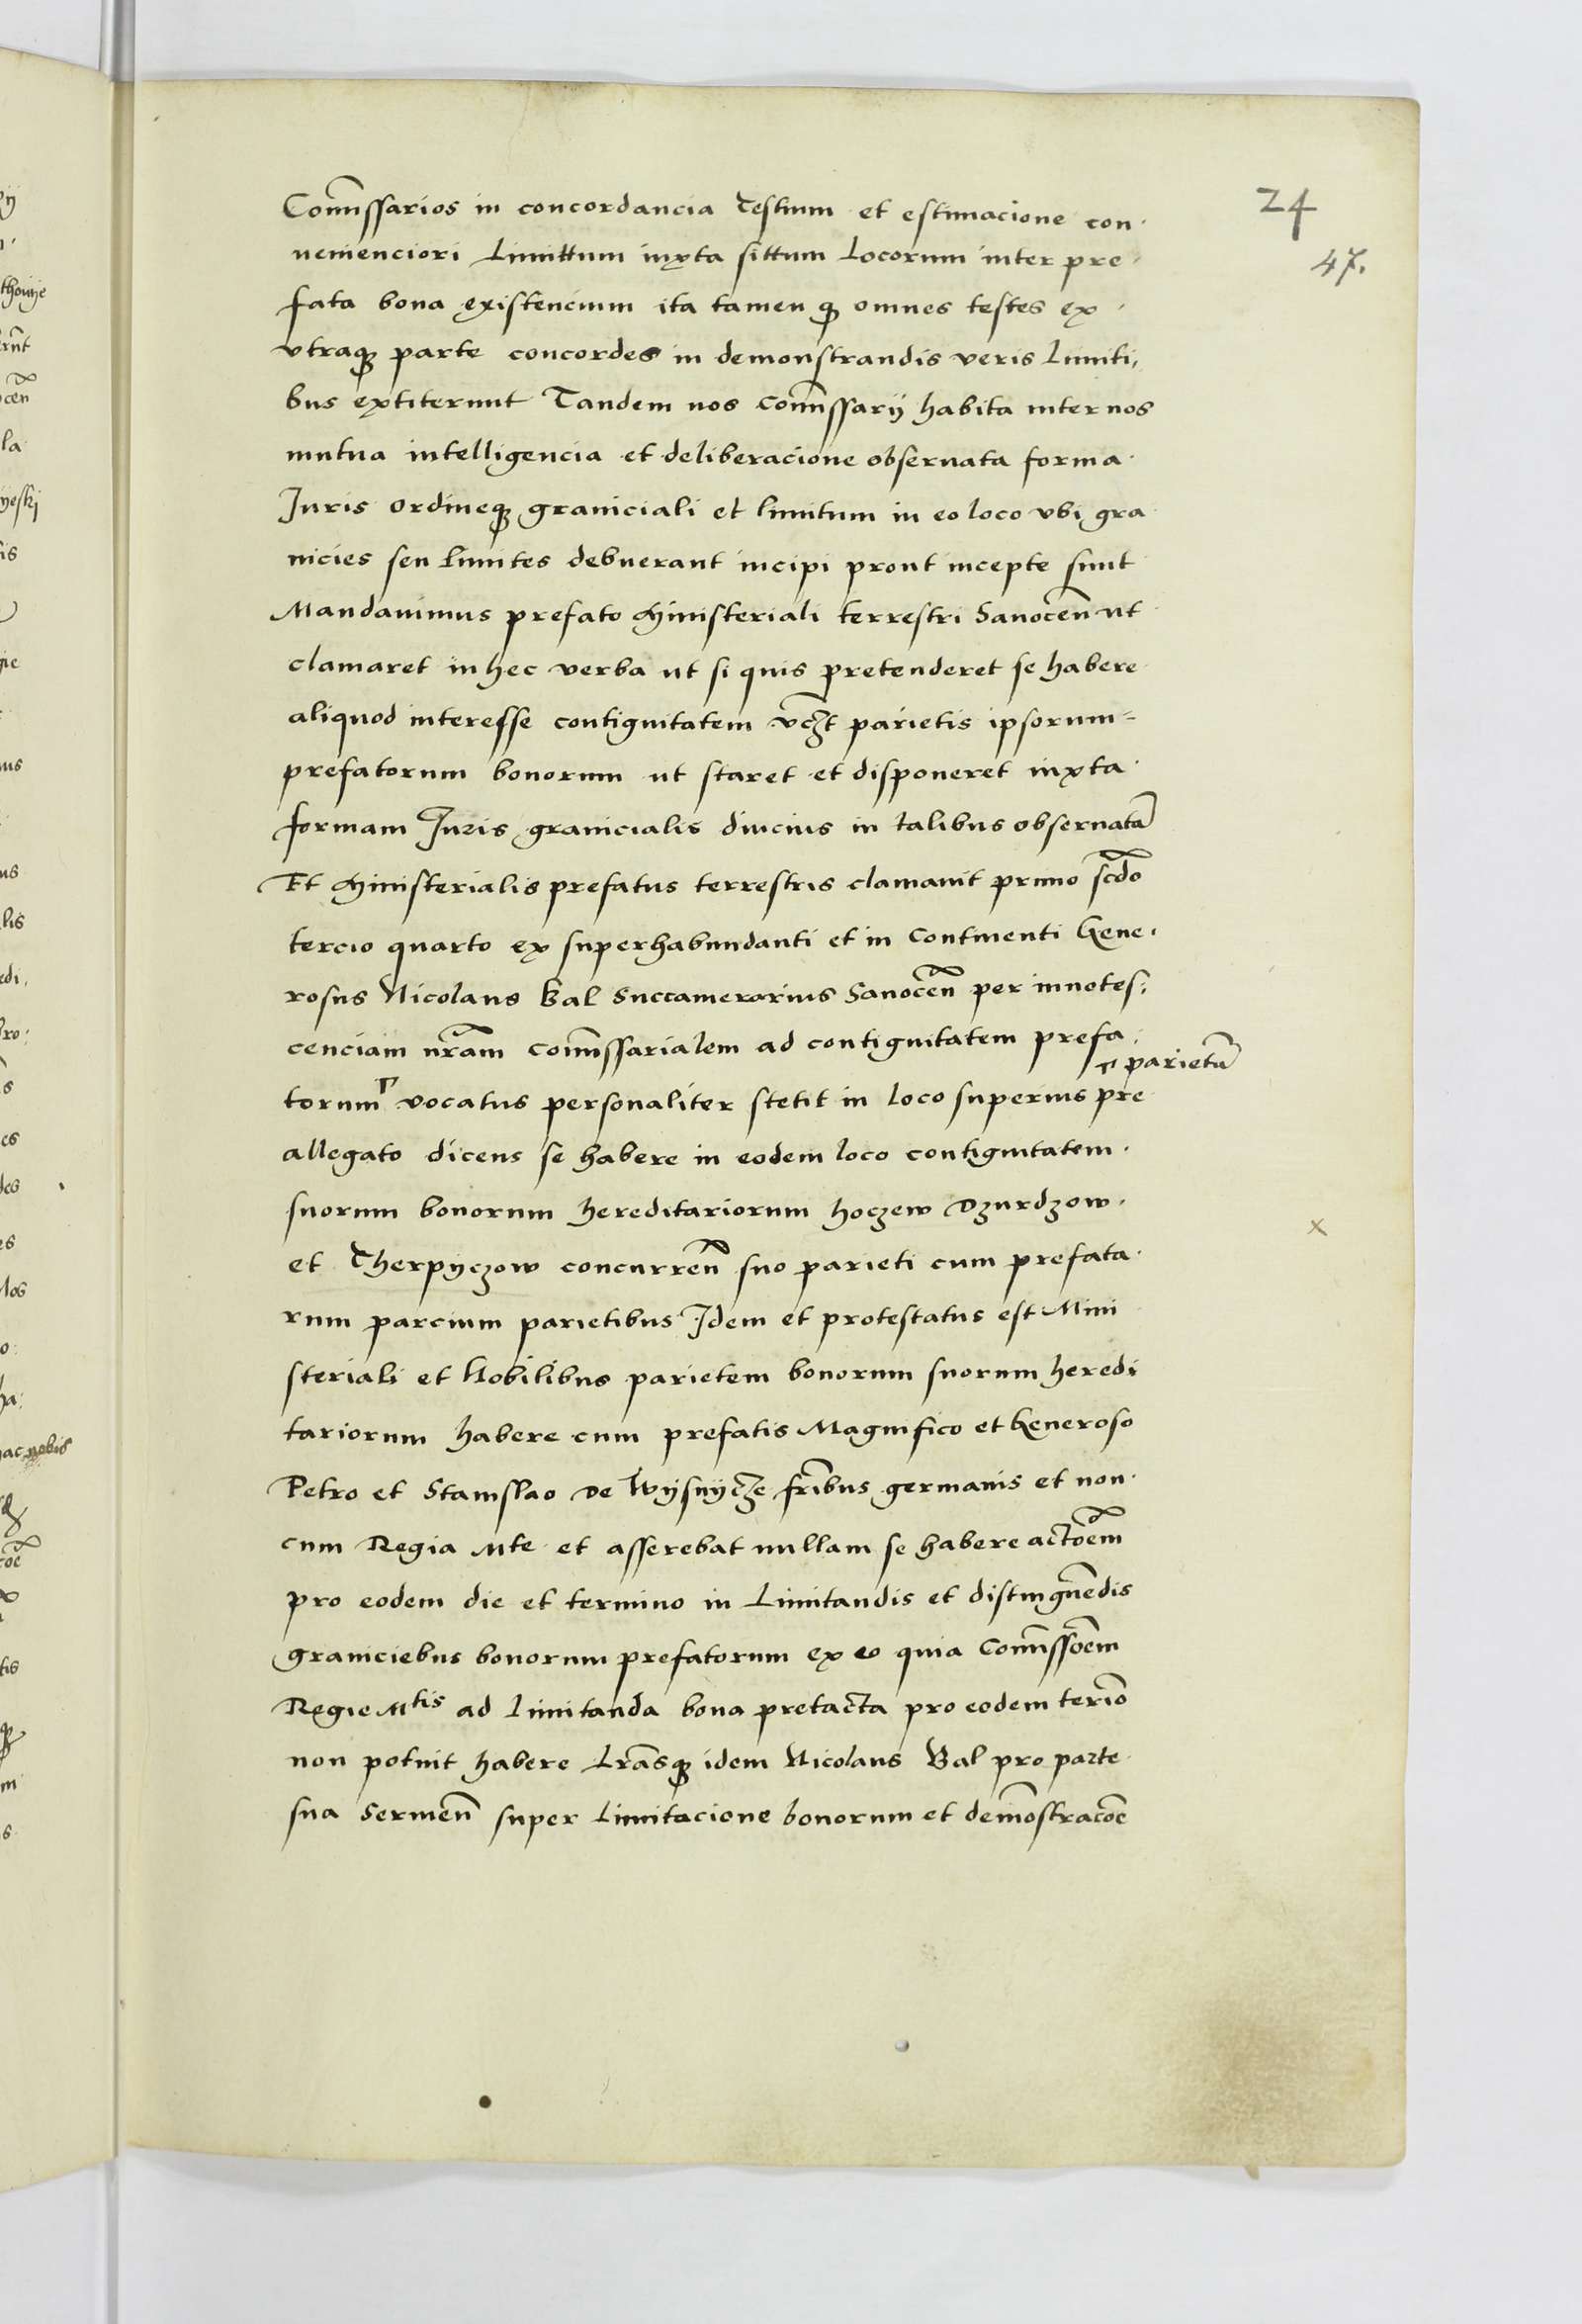 24
47.
Com̄issarios in concordancia Testium et estimacione con-
uenienciori Limittum iuxta sittum Locorum inter pre-
fata bona existencium ita tamen q̃ omnes testes ex
vtraq̃ parte concordes in demonstrandis veris Limiti-
bus extiterunt Tandem nos Com̄issarij habita inter nos
mutua intelligencia et deliberacione obseruata forma
Juris ordineq̃ graniciali et limitum in eo loco vbi gra
nicies seu limites debuerant incipi prout incepte sunt
Mandauimus prefato Ministeriali terrestri Sanocen̄ ut
clamaret in hec verba ut si quis pretenderet se habere
aliquod interesse contiguitatem vcz̃t parietis ipsorum
prefatorum bonorum ut staret et disponeret iuxta
formam Juris granicialis diucius in talibus obseruatā
Et Ministerialis prefatus terrestris clamauit primo scd̄o
tercio quarto ex superhabundanti et in continenti Gene-
rosus Nicolaus Bal Succamerarius Sanocen̄ per innotes-
cenciam nr̄am com̄issarialem ad contiguitatem prefa-
┌ parietū
torum ┌ vocatus personaliter stetit in loco superius pre
allegato dicens se habere in eodem loco contiguitatem
suorum bonorum hereditariorum hoczew Dzurdzow
et Therpyczow concurren̄ suo parieti cum prefata-
rum parcium parietibus Idem et protestatus est Mini
steriali et Nobilibus parietem bonorum suorum heredi-
tariorum habere cum prefatis Magnifico et Generoso
Petro et Stanislao de Wysnycze fr̄ibus germanis et non
cum Regia Mte et asserebat nullam se habere actoēm
pro eodem die et termino in Limitandis et distinguēdis
graniciebus bonorum prefatorum ex eo quia Com̄issoēm
Regie Mtis ad limitanda bona pretacta pro eodem teriō
non potuit habere Lrāsq̃ idem Nicolaus Bal pro parte
sua Sermen̄ super Limitacione bonorum et demōstracōe
x